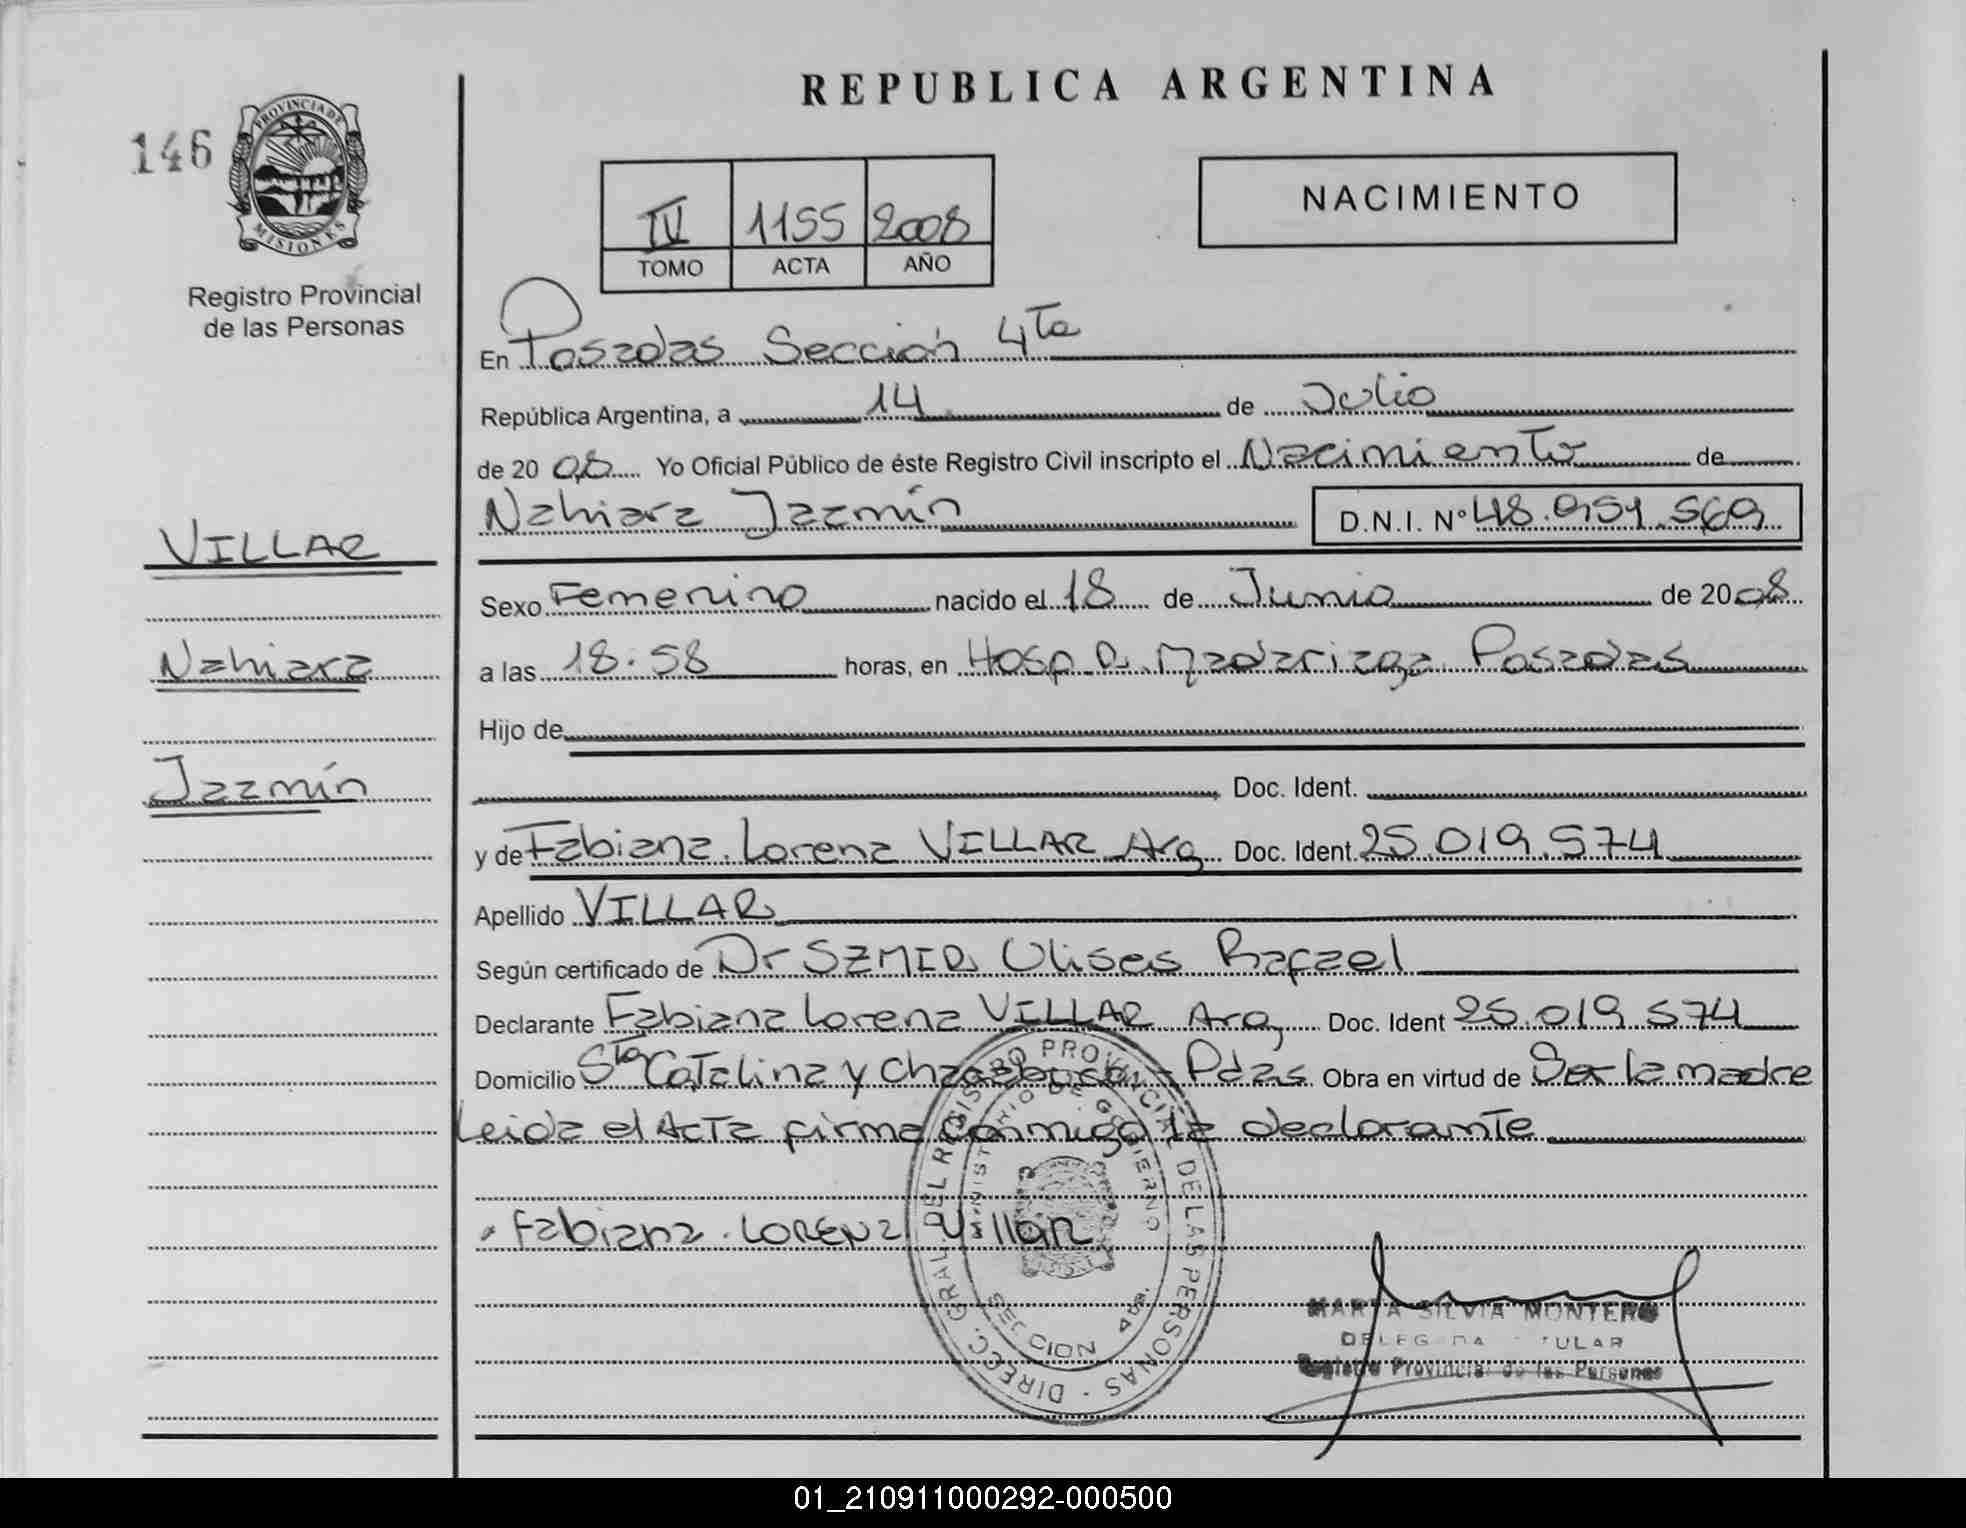 REPUBLICA ARGENTINA
146
PROVINCIA DE MISIONES
Registro Provincial
de las Personas
IV 1155 2008
TOMO ACTA AÑO
NACIMIENTO
En Posadas Sección 4ta
República Argentina, a 14 de Julio
de 20 08 Yo Oficial Público de éste Registro Civil inscripto el Nacimiento de
Nahiara Jazmín D.N.I. Nº 48.951.569
VILLAR
Nahiara
Jazmín
Sexo Femenino nacido el 18 de Junio de 2008
a las 18:58 horas, en Hosp. R. Madariaga Posadas
Hijo de
Doc. Ident.
y de Fabiana Lorena VILLAR Arg Doc. Ident. 25.019.574
Apellido VILLAR
Según certificado de Dr SZMIR Ulises Rafael
Declarante Fabiana Lorena VILLAR Arg Doc. Ident 25.019.574
Domicilio Sta Catalina y Chacabuco - Pdas Obra en virtud de Ser la madre
Leida el Acta firma conmigo la declarante
Fabiana LORENA Villar
DIREC. GRAL DEL REGISTRO PROVINCIAL DE LAS PERSONAS
MINISTERIO DE GOBIERNO
SECCION 4ta.
MARTA SILVIA MONTERO
DELEGADA TITULAR
Registro Provincial de las Personas
01_210911000292-000500